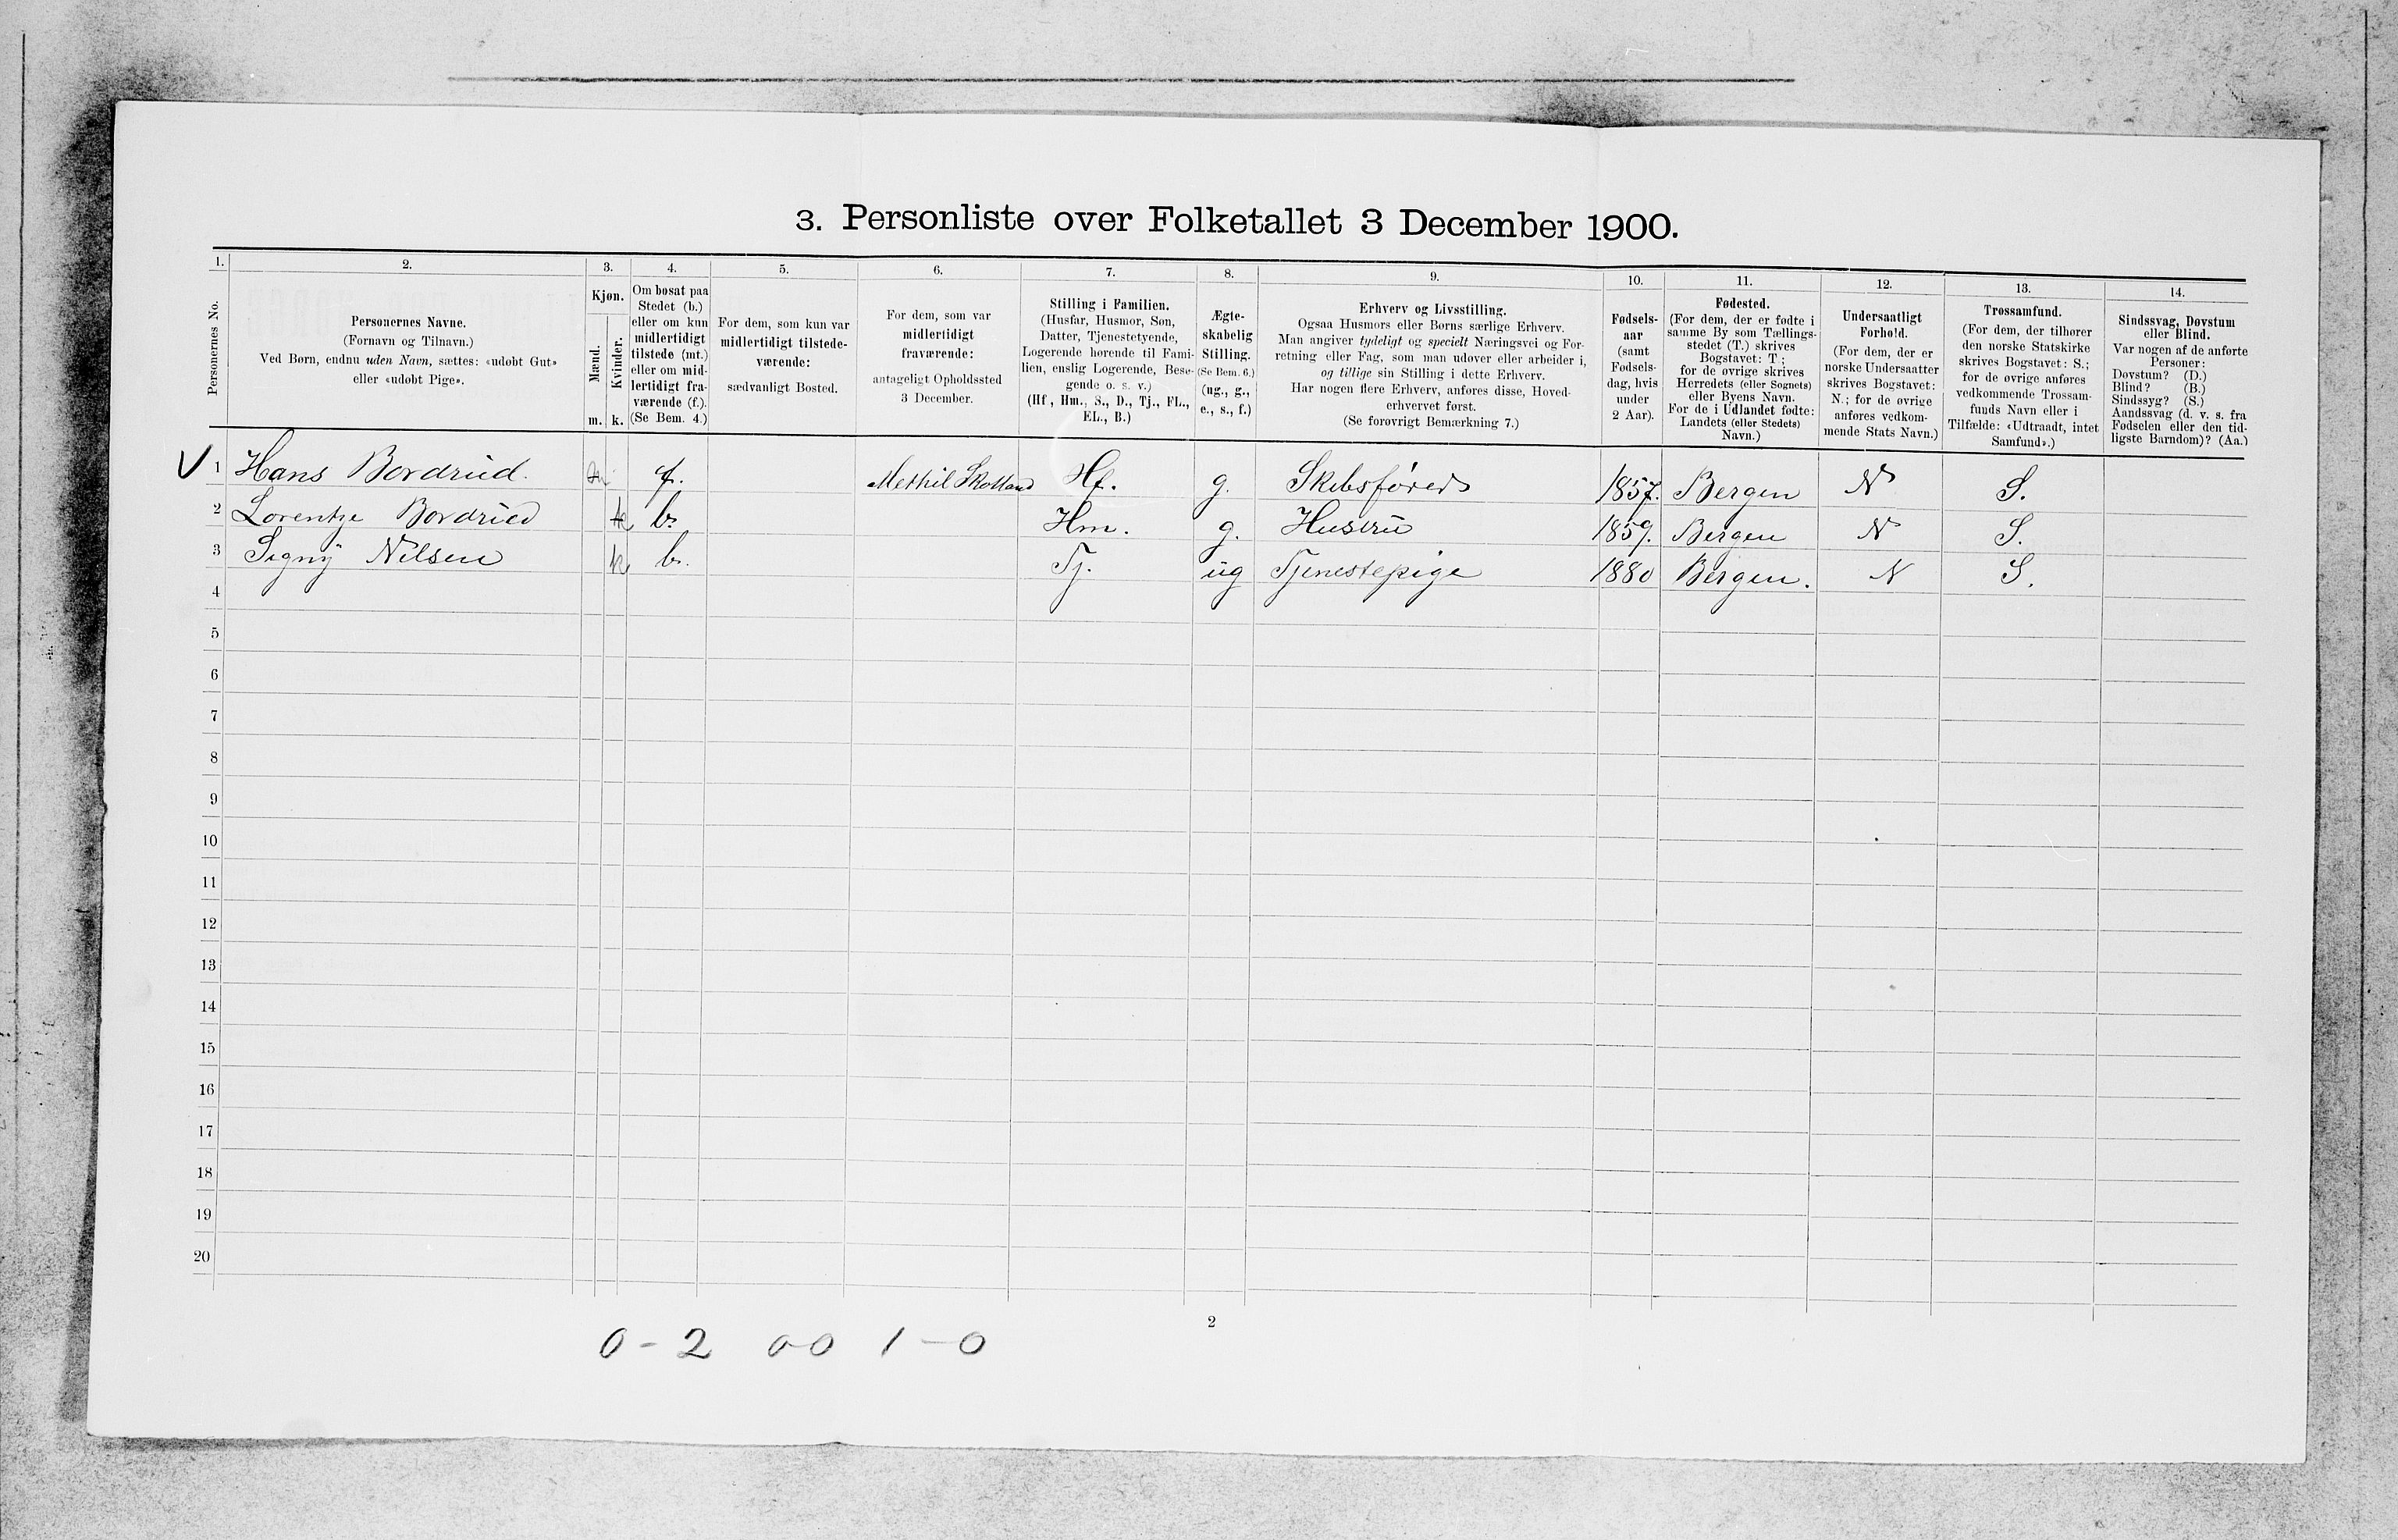 3. Personliste over Folketallet 3 December 1900.
1.
2.
3.
4.
5.
6.
7.
8.
9.
10.
11.
12.
13.
14.
Personernes No.
Personernes Navne.
(Fornavn og Tilnavn.)
Ved Børn, endnu uden Navn, sættes: «udøbt Gut»
eller «udøbt Pige».
Kjøn.
Mænd.
Kvinder.
m.
k.
Om bosat paa
Stedet (b.)
eller om kun
midlertidigt
tilstede (mt.)
eller om mid-
lertidigt fra-
værende (f.).
(Se Bem. 4.)
For dem, som kun var
midlertidigt tilstede-
værende:
sædvanligt Bosted.
For dem, som var
midlertidigt
fraværende:
antageligt Opholdssted
3 December.
Stilling i Familien.
(Husfar, Husmor, Søn,
Datter, Tjenestetyende,
Logerende hørende til Fami-
lien, enslig Logerende, Besø-
gende o. s. v.)
(Hf, Hm., S., D., Tj., FL.,
EL., B.)
Ægte-
skabelig
Stilling.
(Se Bem. 6.)
(ug., g.,
e., s., f.)
Erhverv og Livsstilling.
Ogsaa Husmors eller Børns særlige Erhverv.
Man angiver tydeligt og specielt Næringsvei og For-
retning eller Fag, som man udøver eller arbeider i,
og tillige sin Stilling i dette Erhverv.
Har nogen flere Erhverv, anføres disse, Hoved-
erhvervet først.
(Se forøvrigt Bemærkning 7.)
Fødsels-
aar
(samt
Fødsels-
dag, hvis
under
2 Aar).
Fødested.
(For dem, der er fødte i
samme By som Tællings-
stedet (T.) skrives
Bogstavet: T;
for de øvrige skrives
Herredets (eller Sognets)
eller Byens Navn.
For de i Udlandet fødte:
Landets (eller Stedets)
Navn.)
Undersaatligt
Forhold.
(For dem, der er
norske Undersaatter
skrives Bogstavet:
N.; for de øvrige
anføres vedkom-
mende Stats Navn.)
Trossamfund.
(For dem, der tilhører
den norske Statskirke
skrives Bogstavet: S.;
for de øvrige anføres
vedkommende Trossam-
funds Navn eller i
Tilfælde: «Udtraadt, intet
Samfund».)
Sindssvag, Døvstum
eller Blind.
Var nogen af de anførte
Personer:
Døvstum? (D.)
Blind? (B.)
Sindssyg? (S.)
Aandssvag (d. v. s. fra
Fødselen eller den tid-
ligste Barndom)? (Aa.)
V 1 Hans Bordrud. m f. Methil Skotland Hf. g. Skibsfører 1857. Bergen N S.
2 Lorentze Bordrud k b. Hm. g. Hustru 1859. Bergen N S.
3 Signy Nilsen k b. Tj. ug Tjenestepige 1880 Bergen. N S.
4
5
6
7
8
9
10
11
12
13
14
15
16
17
18
19
20
2
0-2 0-0 1-0